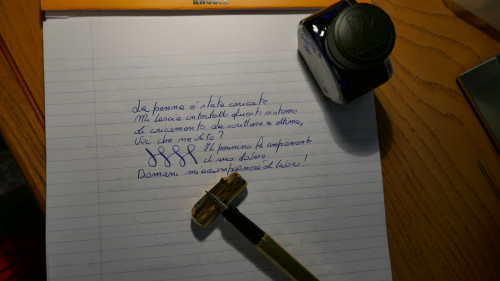 La penna è stata caricata
Mi lascia interdetto questo sistema
di caricamento, ma scrittura è ottima,
Voi che ne dite?
Il pennino fa ampiamente
il suo dovere.
Domani mi accompagnerà al lavoro!